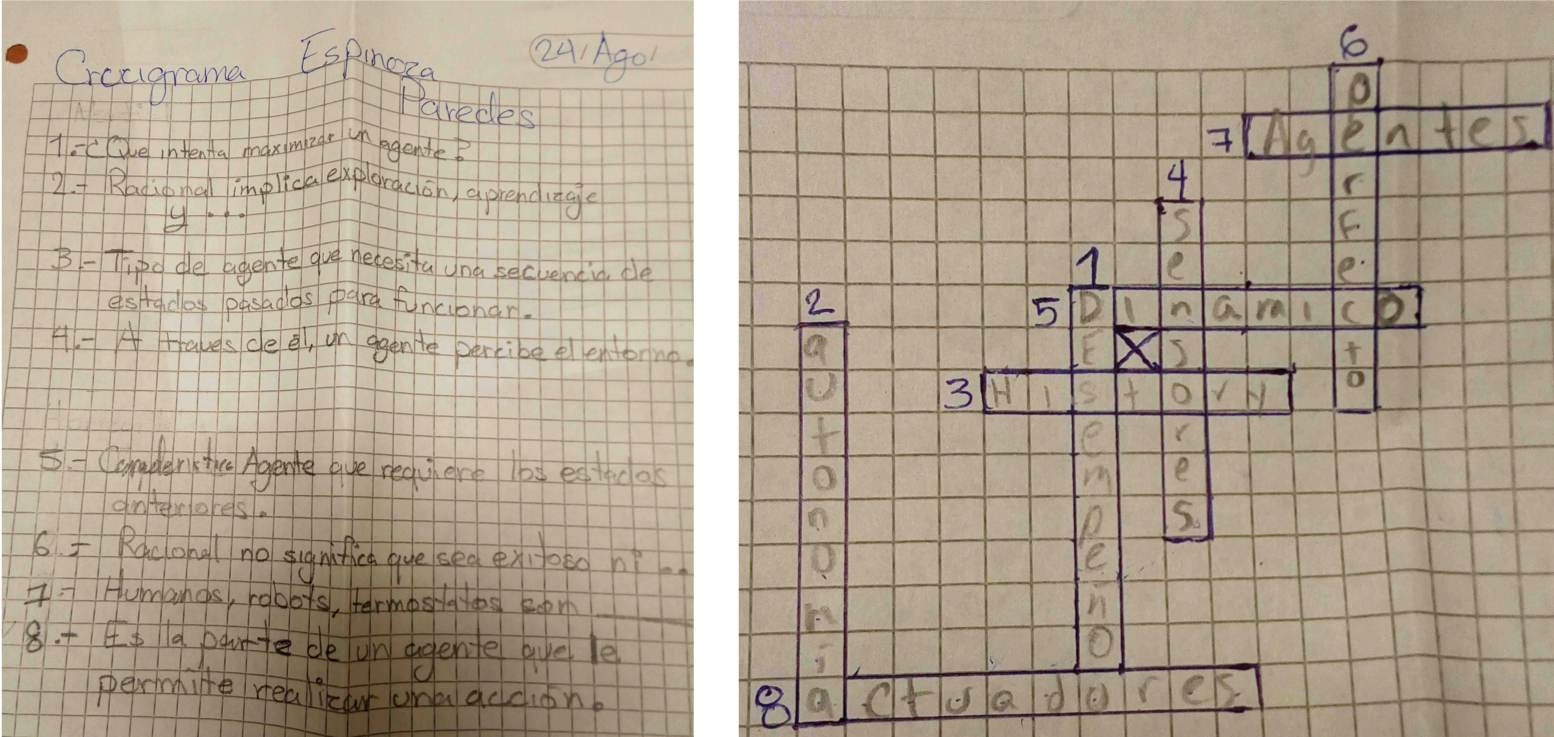 Crucigrama Espinoza 24/Ago/
Paredes
1.- ¿Que intenta maximizar un agente?
2.- Racional implica exploración, aprendizaje
y ...
3.- Tipo de agente que necesita una secuencia de
estados pasados para funcionar.
4.- A traves de él, un agente percibe el entorno.
5.- Agente que requiere los estados
anteriores.
6.- Racional no significa que sea exitoso ni ...
7.- Humanos, robots, termostatos son
8.- Es la parte de un agente que le
permite realizar una acción.
6
Perfecto
7 Agentes
4
Sensores
1
DEsempeño
5 Dinamico
2
autonomia
3 History
8 actuadores